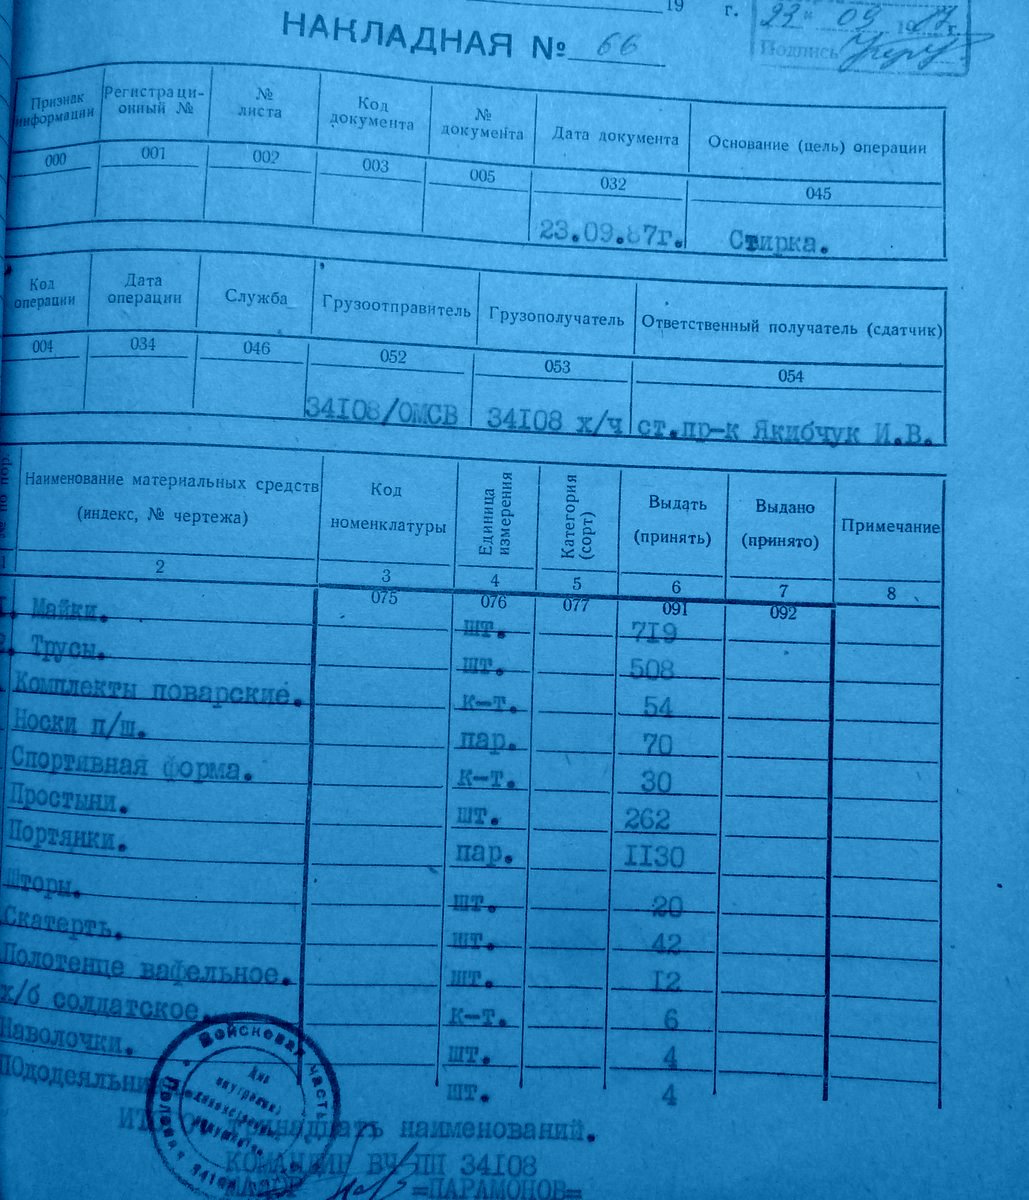 19 г.
23 09 1987г.
Подпись
НАКЛАДНАЯ № 66
Признак информации Регистрационный № № листа Код документа № документа Дата документа Основание (цель) операции
000 001 002 003 005 032 045
23.09.87г. Стирка.
Код операции Дата операции Служба Грузоотправитель Грузополучатель Ответственный получатель (сдатчик)
004 034 046 052 053 054
34I08/ОМСВ 34I08 х/ч ст.пр-к Якибчук И.В.
№ по пор. Наименование материальных средств (индекс, № чертежа) Код номенклатуры Единица измерения Категория (сорт) Выдать (принять) Выдано (принято) Примечание
1 2 3 4 5 6 7 8
075 076 077 091 092
Майки. шт. 7I9
2. Трусы. шт. 508
Комплекты поварские. к-т. 54
Носки п/ш. пар. 70
Спортивная форма. к-т. 30
Простыни. шт. 262
Портянки. пар. II30
Шторы. шт. 20
Скатерть. шт. 42
Полотенце вафельное. шт. I2
х/б солдатское. к-т. 6
Наволочки. шт. 4
ПОдодеяльник шт. 4
Войсковая часть
Полевая
Для
тринадцать наименований.
КОМАНДИР ВЧ ПП 34I08
МАЙОР =ПАРАМОНОВ=